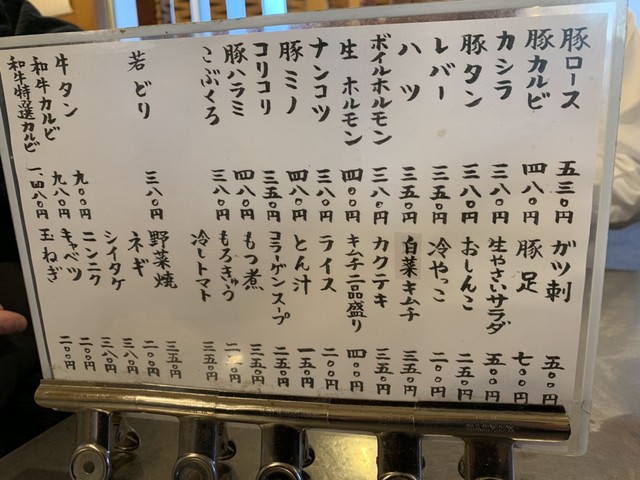 豚ロース 五三〇円
豚カルビ 四八〇円
カシラ 三八〇円
豚タン 三八〇円
レバー 三五〇円
ハツ 三五〇円
ボイルホルモン 三八〇円
生ホルモン 四〇〇円
ナンコツ 三八〇円
豚ミノ 四八〇円
コリコリ 三五〇円
豚ハラミ 四八〇円
こぶくろ 三八〇円
若どり 三八〇円
牛タン 九〇〇円
和牛カルビ 九八〇円
和牛特選カルビ 一、四八〇円
ガツ刺 五〇〇円
豚足 七〇〇円
生やさいサラダ 五〇〇円
おしんこ 二五〇円
冷やっこ 二〇〇円
白菜キムチ 三五〇円
カクテキ 三五〇円
キムチ二品盛り 四〇〇円
ライス 二〇〇円
とん汁 一五〇円
コラーゲンスープ 二五〇円
もつ煮 三五〇円
もろきゅう
冷しトマト 三五〇円
野菜焼 三五〇円
ネギ 二〇〇円
シイタケ 三八〇円
ニンニク 三八〇円
キャベツ 二〇〇円
玉ねぎ 二〇〇円